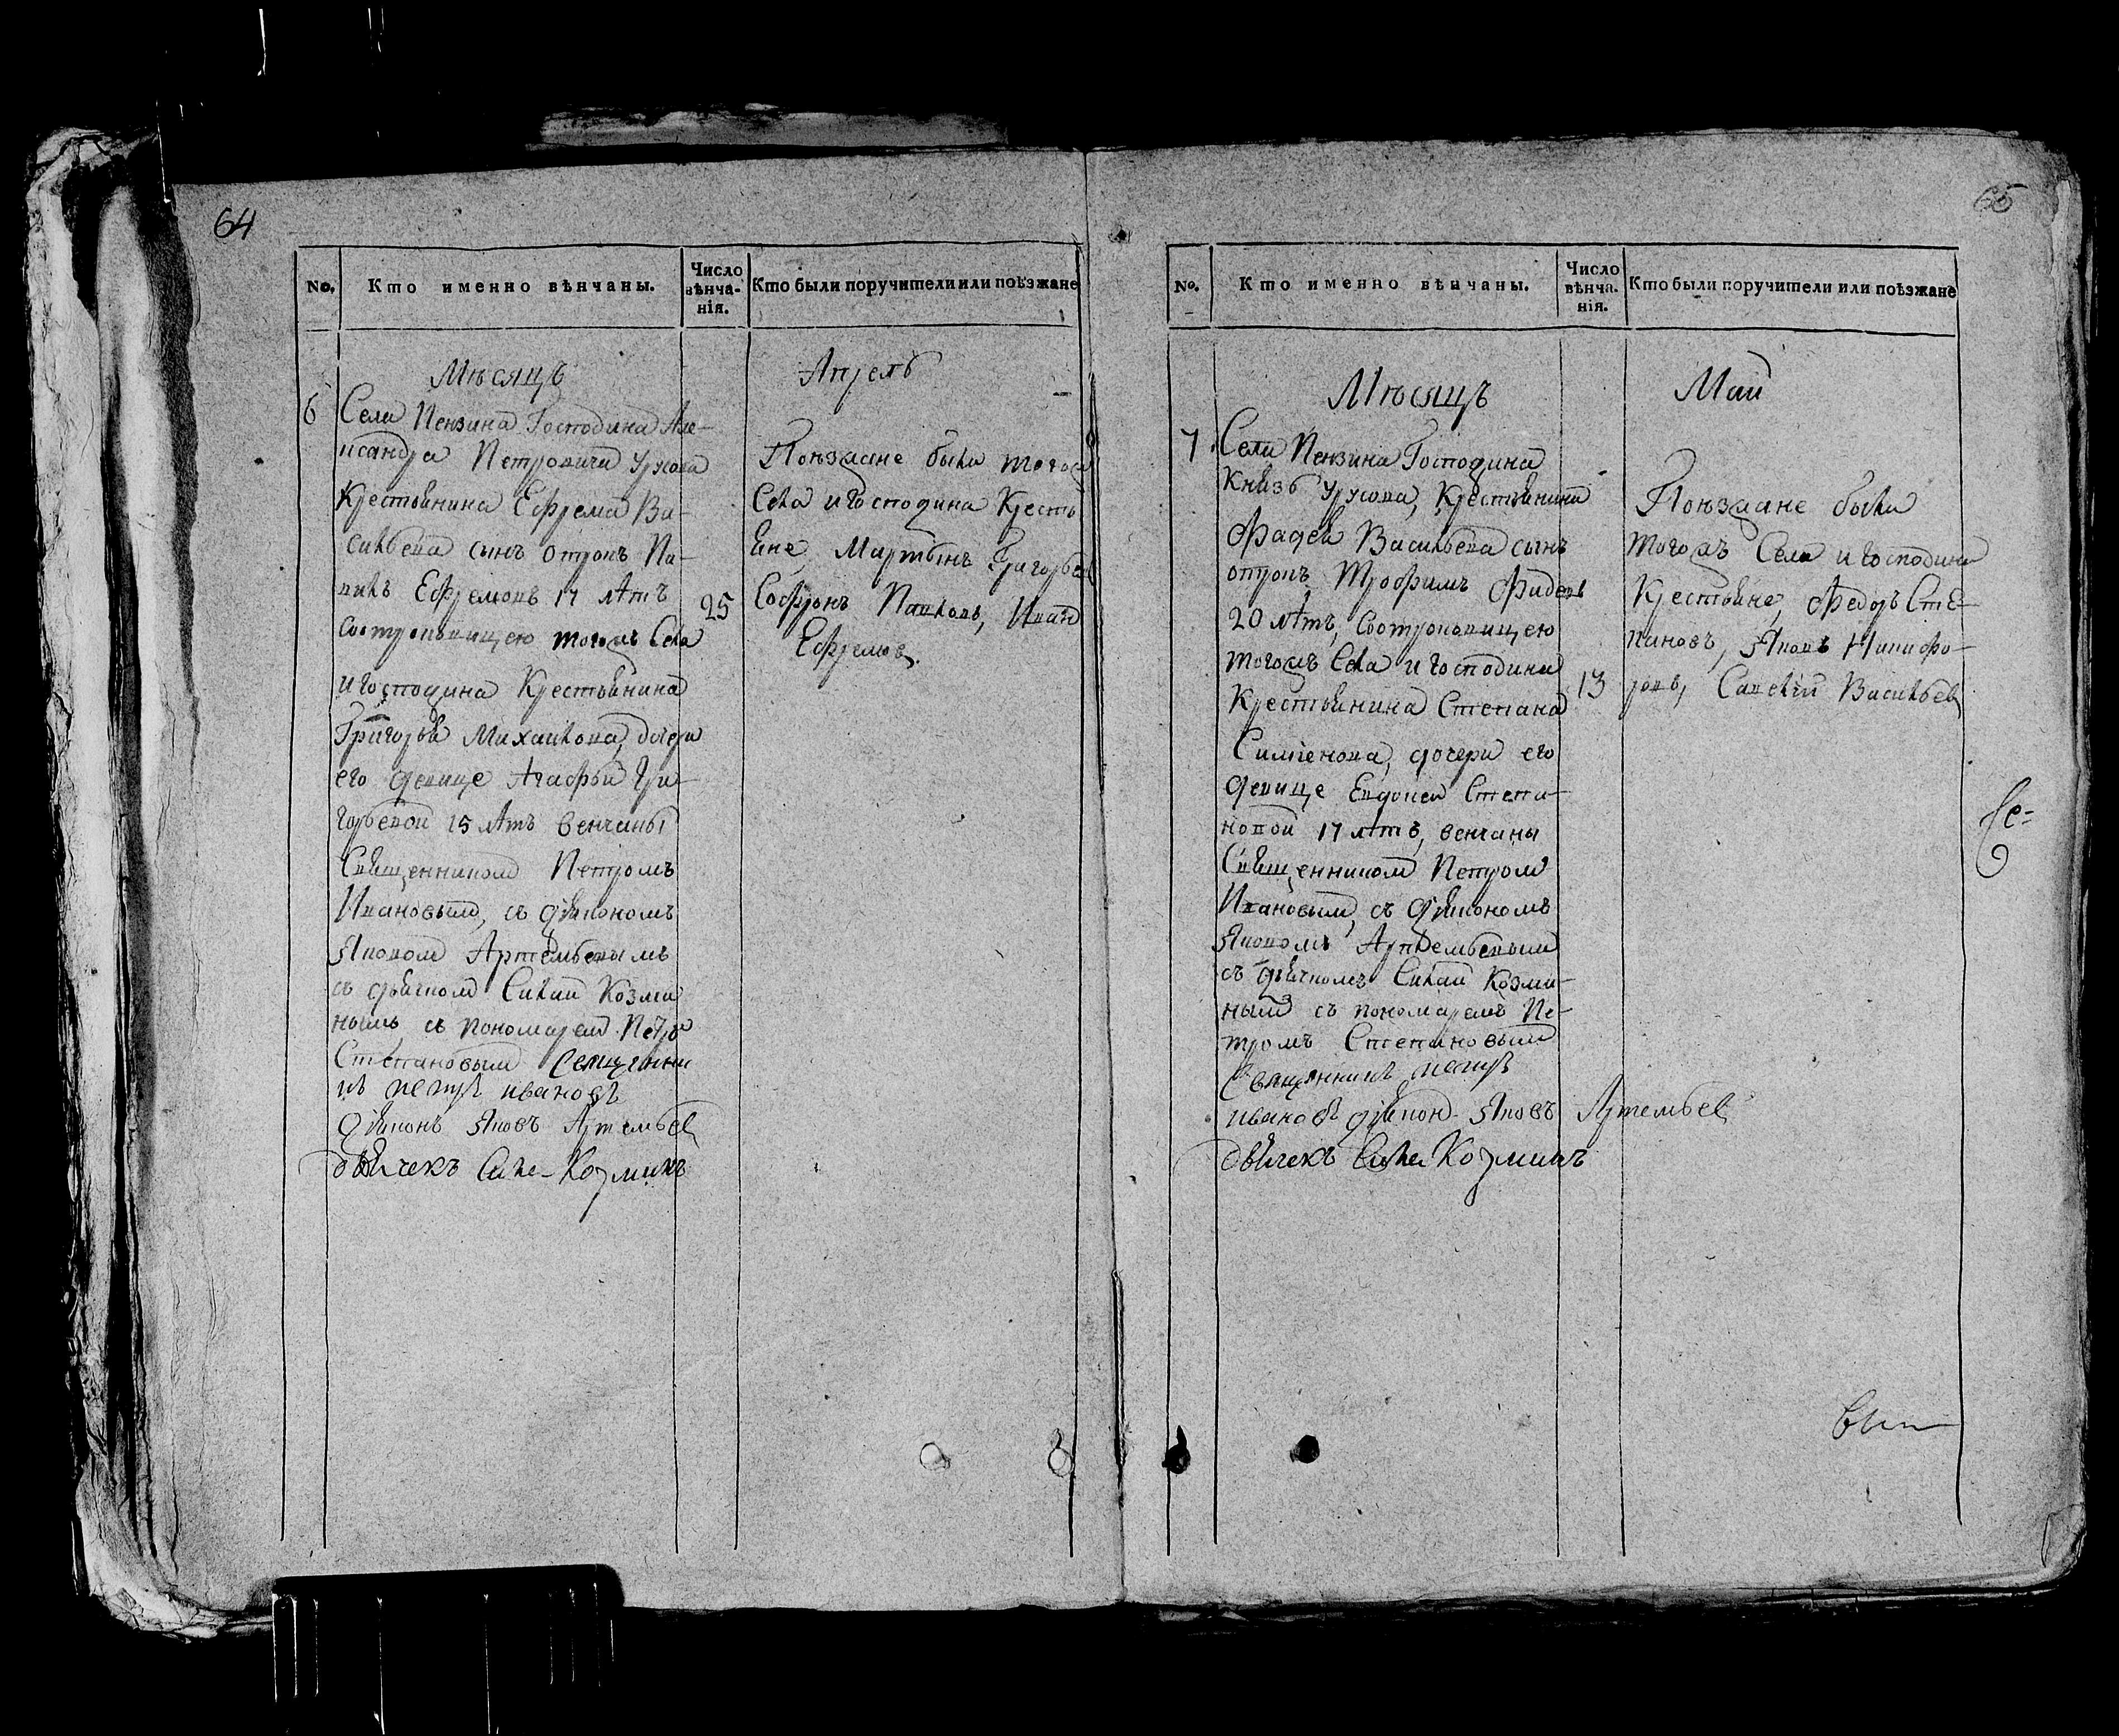 64
No.
Кто именно вѣнчаны.
Число вѣнчанія.
Кто были поручители или поѣзжане
Мѣсяцъ
Апрель
6
Села Пензина Господина Але-
ксандра Петровича Урусова
Крестьянина Ефрема Ва-
сильева сынъ отрокъ Па-
вилъ Ефремовъ 17 лѣтъ
соотроковицею тогожъ Села
и Господина Крестьянина
Григорья Михайлова, дочери
его девице Агафьи Гри-
горьевой 15 лѣтъ венчаны
Священником Петромъ
Ивановым, съ діякономъ
Яковом Артемьевымъ
съ дьячком Силай Козми
нымъ съ пономарем Петро
Степановым Священни
къ петръ ивановъ
діяконъ Яковъ Артемьев
дьячекъ Сила Козминъ
25
Поезжане были тогож
Села и Господина Кресть
яне, Мартынъ Григорьев
Софронъ Павловъ, Иван
Ефремов.
65
No.
Кто именно вѣнчаны.
Число вѣнчанія.
Кто были поручители или поѣзжане
Мѣсяцъ
Май
7.
Села Пензина Господина
Князь Урусова, Крестьянина
Фадея Васильева сынъ
отрокъ Трофимъ Фадеевъ
20 лѣтъ, соотроковицею
тогожъ Села и Господина
Крестьянина Степана
Симіенова, дочери его
девице Евдокеи Степа-
новой 17 лѣтъ, венчаны
Священником Петром
Ивановым, съ діякономъ
Яковомъ Артемьевым
съ дьячкомъ Силай Козми-
ным съ пономаремъ Пе-
тромъ Степановым
Священникъ петръ
ивановъ діякон Яковъ Артемьев
дьячекъ Сила Козминъ
13
Поезжане были
тогожъ Села и Господина
Крестьяне, Федоръ Сте-
пановъ, Яковъ Никифо-
ровъ, Савелій Васильев
Се=